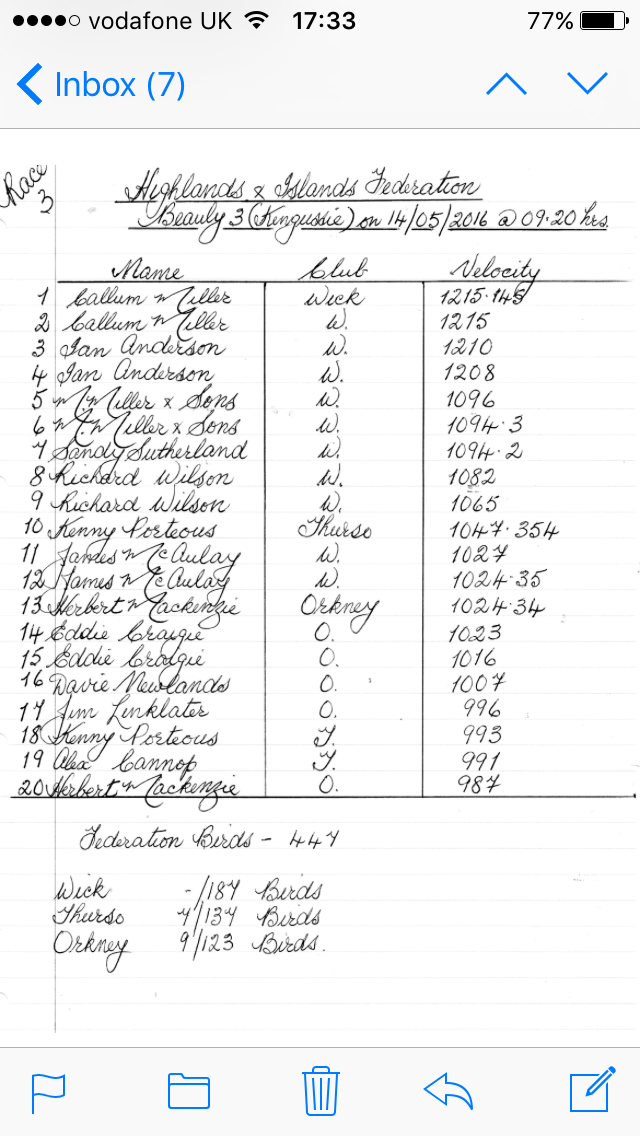 vodafone UK 17:33 77%
Inbox (7)
Race 3
Highlands & Islands Federation
Beauly 3 (Kingussie) on 14/05/2016 @ 09.20 hrs.
Name Club Velocity
1 Callum Miller Wick 1215.145
2 Callum Miller W. 1215
3 Ian Anderson W. 1210
4 Ian Anderson W. 1208
5 M. Miller & Sons W. 1096
6 M. Miller & Sons W. 1094.3
7 Sandy Sutherland W. 1094.2
8 Richard Wilson W. 1082
9 Richard Wilson W. 1065
10 Kenny Porteous Thurso 1047.354
11 James McAulay W. 1027
12 James McAulay W. 1024.35
13 Herbert Mackenzie Orkney 1024.34
14 Eddie Craigie O. 1023
15 Eddie Craigie O. 1016
16 Davie Newlands O. 1007
17 Jim Linklater O. 996
18 Kenny Porteous T. 993
19 Alex Cannop T. 991
20 Herbert Mackenzie O. 987
Federation Birds - 447
Wick -/187 Birds
Thurso 7/137 Birds
Orkney 9/123 Birds.